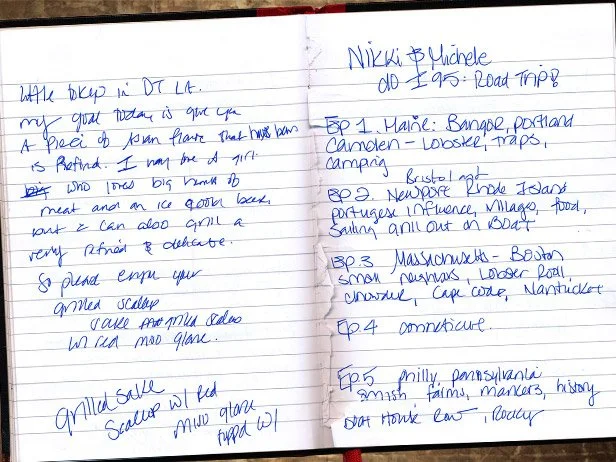 little tokyo in DT LA.
my goal today is give you
A Peice of Asian flavor that has been
is Refind. I may be A girl
who loves big hunks of
meat and an ice cold beer,
but I can also grill a
very refined & delicate.
So please enjoy your
grilled scallop
sake grilled scallop
w/ red miso glaze.
grilled sake
scallop w/ red
miso glaze
topped w/
Nikki & Michele
do I 95: Road Trip!
EP 1. Maine: Bangor, portland
Camden - Lobster, traps,
camping
Bristol and
EP 2. Newport Rhode Island
portugese influence, villages, food,
Sailing grill out on Boat
EP. 3 Massachusetts - Boston
small neighbors, Lobster Roll,
chowder, Cape Code, Nantucket
EP. 4 Connecticut.
EP. 5 philly, pennsylvania
amish, farms, markers, history
Boat House Row, Rocky